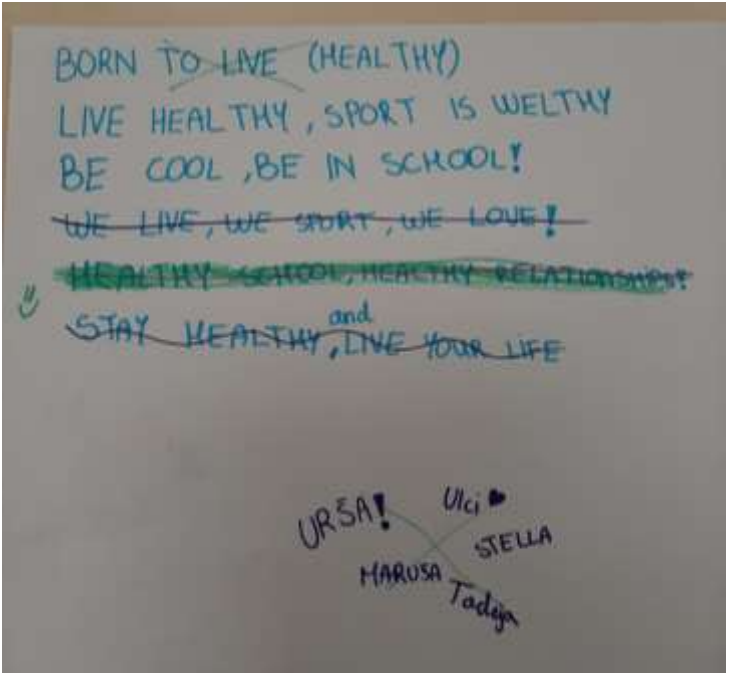 BORN TO LIVE (HEALTHY)
LIVE HEALTHY, SPORT IS WELTHY
BE COOL, BE IN SCHOOL!
WE LIVE, WE SPORT, WE LOVE!
HEALTHY SCHOOL, HEALTHY RELATIONSHIPS!
STAY HEALTHY, and LIVE YOUR LIFE
URŠA! Ulci ♥
STELLA
MARUSA
Tadeja